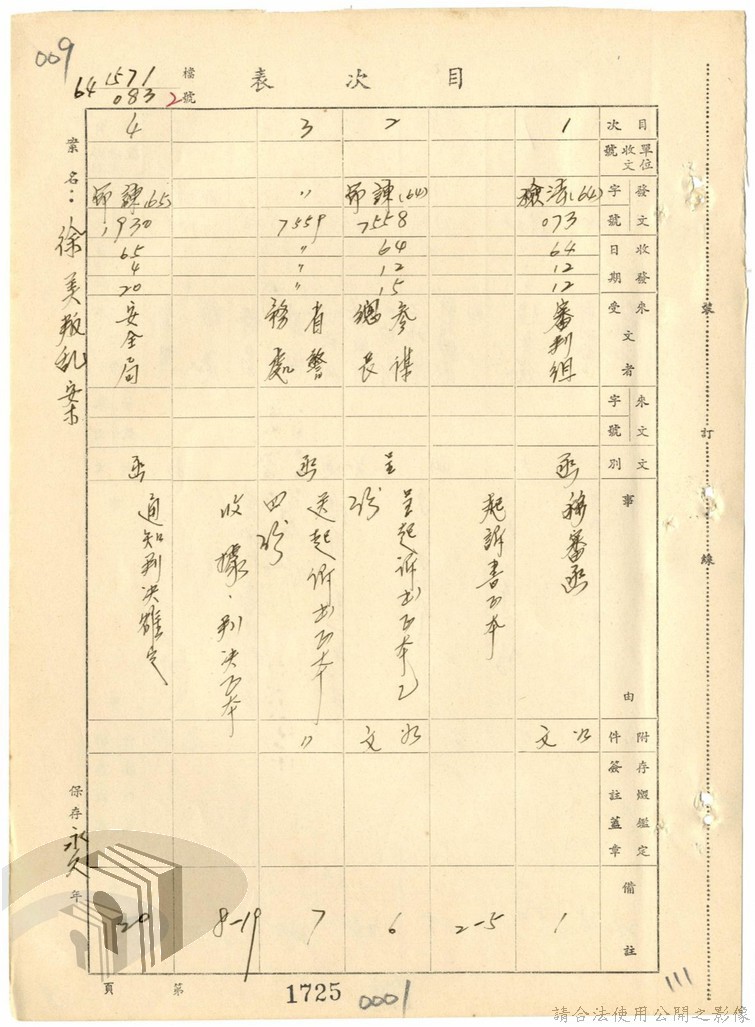 009
目次表
檔號
64 1571
083 2
案名：徐美叛乱案
保存永久年
目次
單位收文號
發文字號
收發日期
來受文者
來文字號
文別
事由
附件
存燬鑑定簽註蓋章
備註
1
(64)
073
64
12
12
審判組
函
移審函
文
1
起訴書正本
2-5
2
(64)
7558
64
12
15
參謀總長
呈
呈起訴書正本乙份
如文
6
3
〃
7559
〃
〃
〃
省警務處
函
送起訴書正本四份
〃
7
收據．判決正本
8-19
4
(65)
1930
65
4
20
安全局
函
通知判決確定
20
裝訂線
第
頁
1725
0001
111
請合法使用公開之影像